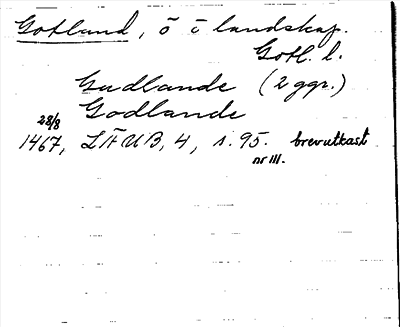 Gotland, ö i landskap.
Gotl. l.
Gudlande (2 ggr.)
Godlande
28/8
1467, LFUB, 4, s. 95. brevutkast
nr 111.